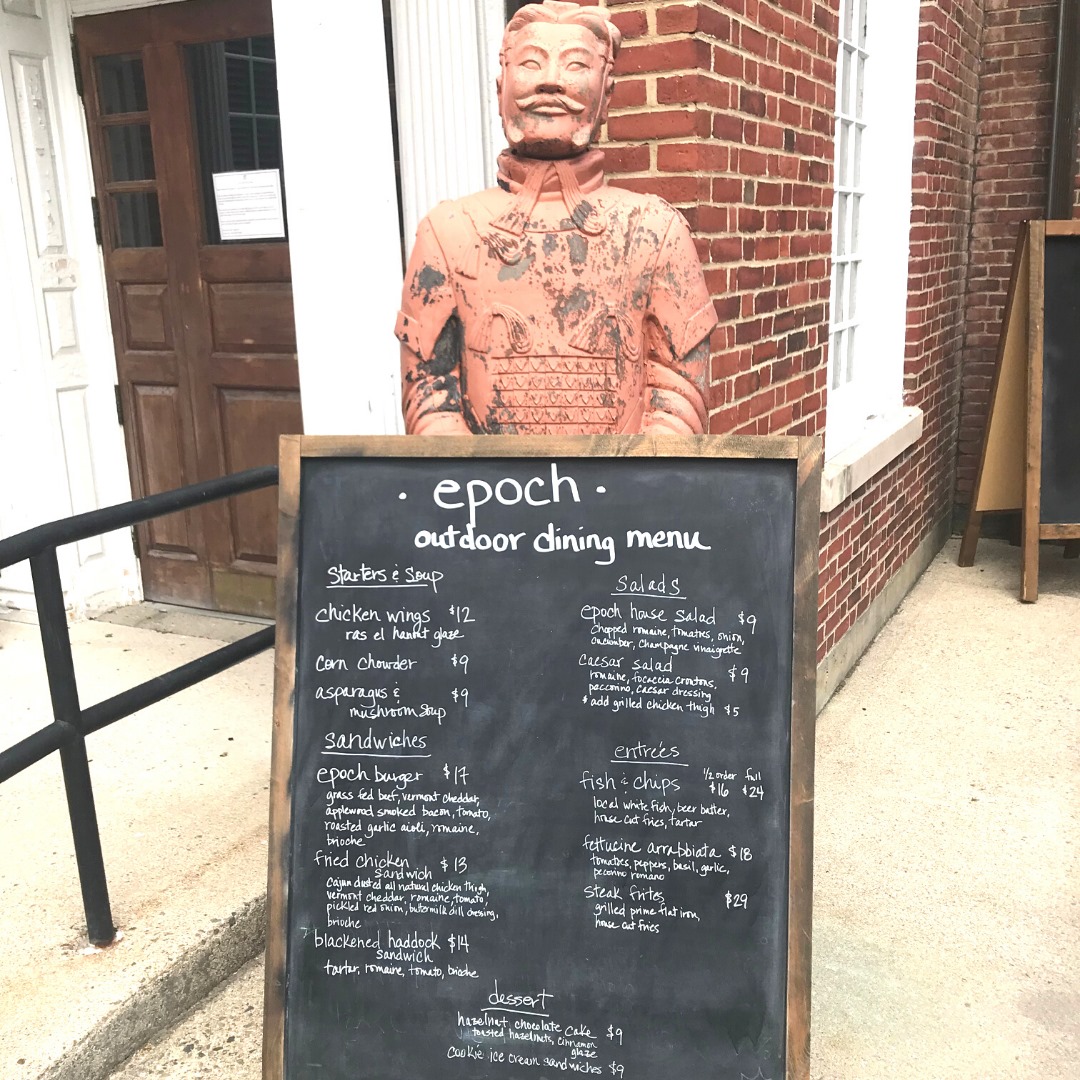 · epoch ·
outdoor dining menu
Starters & Soup
chicken wings $12
ras el hanut glaze
corn chowder $9
asparagus & $9
mushroom soup
Sandwiches
epoch burger $17
grass fed beef, vermont cheddar,
applewood smoked bacon, tomato,
roasted garlic aioli, romaine,
brioche
fried chicken $13
sandwich
cajun dusted all natural chicken thigh,
vermont cheddar, romaine, tomato,
pickled red onion, buttermilk dill dressing,
brioche
blackened haddock $14
sandwich
tartar, romaine, tomato, brioche
Salads
epoch house salad $9
chopped romaine, tomatoes, onion,
cucumber, champagne vinaigrette
caesar salad $9
romaine, focaccia croutons,
peccorino, caesar dressing
* add grilled chicken thigh $5
entrées
fish & chips 1/2 order $16 full $24
local white fish, beer batter,
house cut fries, tartar
fettucine arrabbiata $18
tomatoes, peppers, basil, garlic,
pecorino romano
steak frites $29
grilled prime flat iron,
house cut fries
dessert
hazelnut chocolate cake $9
toasted hazelnuts, cinnamon
glaze
cookie ice cream sandwiches $9